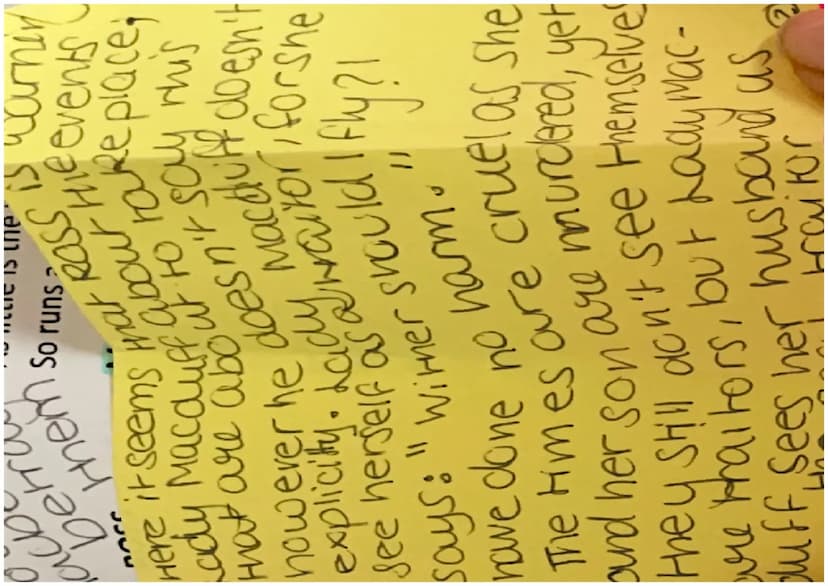 little is the
So runs
them
Here it seems that Ross is warning
Lady Macduff about the events
that are about to take place,
however he doesn't say this
explicitly. Lady Macduff doesn't
see herself as a traitor, for she
says: "Wither should I fly?I
have done no harm."
The times are cruel as she
and her son are murdered, yet
they still don't see themselves
are traitors, but Lady Mac-
duff sees her husband as
traitor